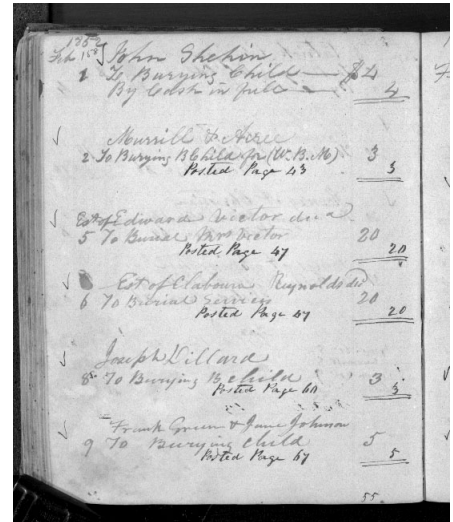 1852
Feb 1st John Shehin
1 To Burying Child — $4
By Cash in full — 4
Murrill & Acree
2 To Burying B Child for (W.B.M) 3
Posted Page 43 3
Est of Edward Victor dec'd
5 To Burial Mrs Victor 20
Posted Page 47 20
Est of Claboura Reynolds decd
6 To Burial Services 20
Posted Page 47 20
Joseph Dillard
8 To Burying B child 3
Posted Page 60 3
Frank Green & June Johnson
9 To Burying Child 5
Posted Page 67 5
55